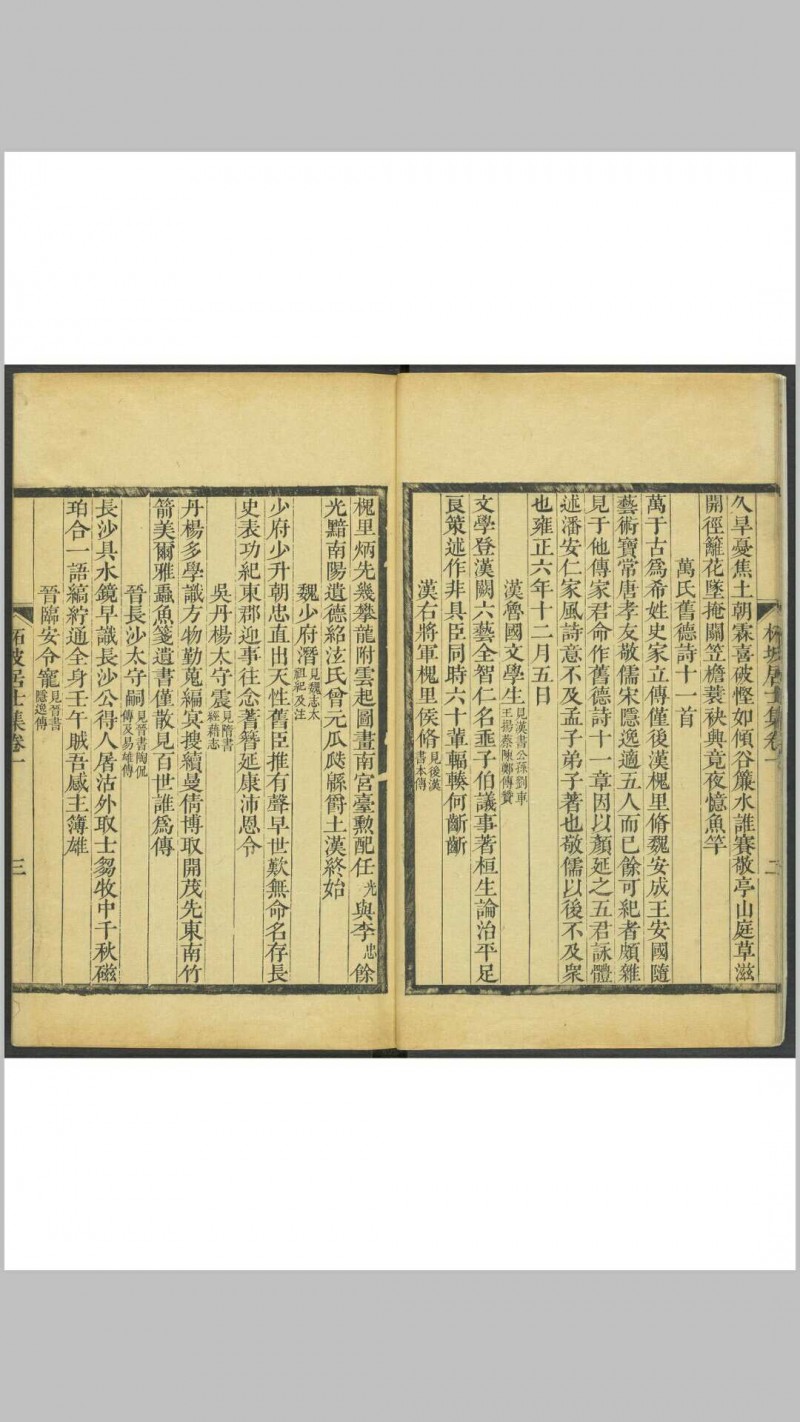 久旱憂焦土朝霖喜破慳如傾谷簾水誰賽敬亭山庭草滋
開徑籬花墜掩關笠檐蓑袂興竟夜憶魚竿
萬氏舊德詩十一首
萬于古爲希姓史家立傳僅後漢槐里脩魏安成王安國隨
藝術寶常唐孝友敬儒宋隱逸適五人而已餘可紀者頗雜
見于他傳家君命作舊德詩十一章因以顏延之五君詠體
述潘安仁家風詩意不及孟子弟子著也敬儒以後不及衆
也雍正六年十二月五日
漢魯國文學生見漢書公孫劉車王楊蔡陳鄭傳贊
文學登漢闕六藝全智仁名垂子伯議事著桓生論治平足
良策述作非具臣同時六十輩輻輳何齗齗
漢右將軍槐里侯脩見後漢書本傳
槐里炳先幾攀龍附雲起圖畫南宮臺勳配任光與李忠餘
光黯南陽遺德紹泫氏曾元瓜瓞緜爵土漢終始
魏少府潛見魏志太祖紀及注
少府少升朝忠直出天性舊臣推有聲早世歎無命名存長
史表功紀東郡迎事往念著簪延康沛恩令
吳丹楊太守震見隋書經藉志
丹楊多學識方物勤蒐編冥搜續曼倩博取開茂先東南竹
箭美爾雅蟲魚箋遺書僅散見百世誰爲傳
晉長沙太守嗣見晉書陶侃傳及易雄傳
長沙具水鏡早識長沙公得人屠沽外取士芻牧中千秋磁
珀合一語縞紵通全身壬午賊吾慼主簿雄
晉臨安令寵見晉書隱逸傳
柘坡居士集卷一
二
柘坡居士集卷一
三